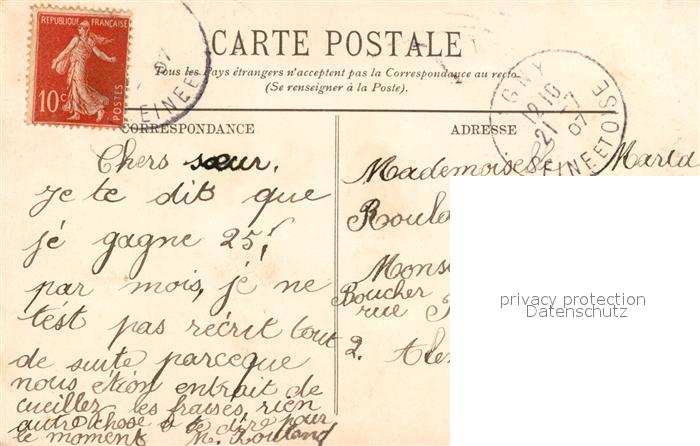 REPUBLIQUE FRANÇAISE
10c POSTES
CARTE POSTALE
Tous les Pays étrangers n'acceptent pas la Correspondance au recto
(Se renseigner à la Poste).
CORRESPONDANCE
Chers sœur,
Je te dit que
jé gagne 25f
par mois, je ne
t'ést pas récrit tout
de suite parceque
nous étion entrait de
cueillez les fraises, rien
autre chose à te dire pour
le moment M. Rouland
ADRESSE
GNY
12 10
21
07
SEINE ET OISE
07
EINE E
Mademoiselle Maria
Roula
Mons
Boucher
rue
2. Alen
privacy protection
Datenschutz